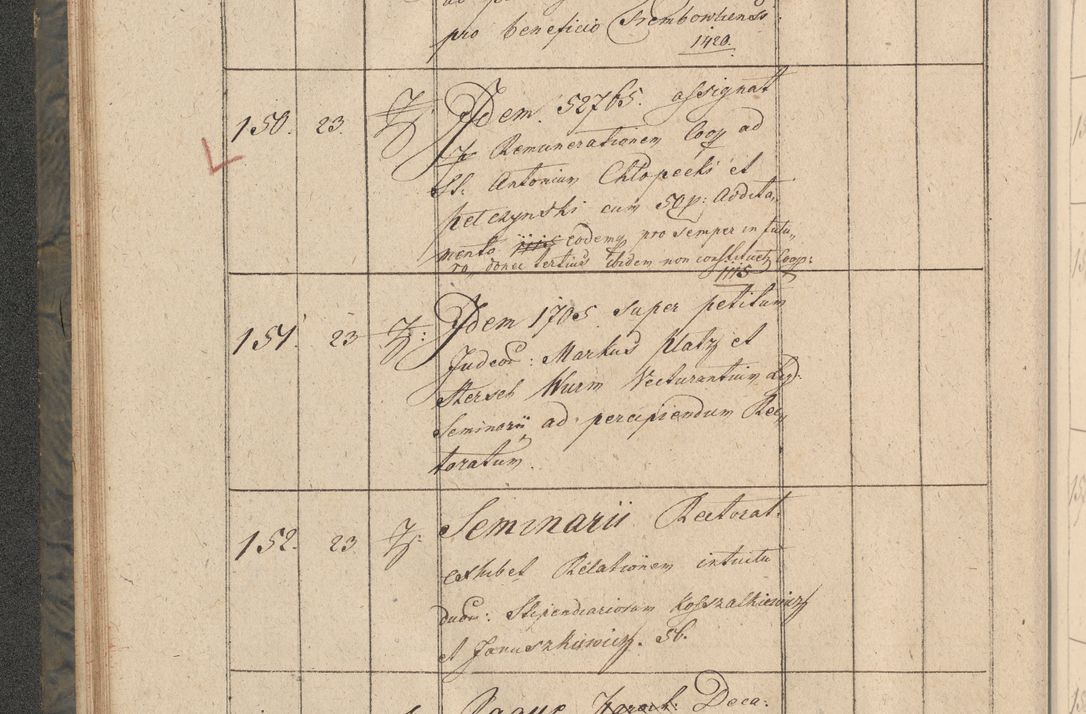 pro beneficio Trembowliensi
1420.
150. 23. Idem. 52765. assignat
Remunerationem Coop ad
SS. Antonium Chłopecki et
Petczynski cum 50 p: Addita„
mento eodemq pro semper in futu„
ro„ donec tertius ibidem non constituetz Coop:
1115
151. 23 Idem 1705. super petitum
Judeor: Markus Platz et
Herseb Wurm Vecturantium Leg:
Seminarii ad percipiendum Rec„
toratum.
152. 23. Seminarii Rectorat.
exhibet Relationem intuitu
duor: Stipendiariorum Kosszalkiewicz
et Januszkiewicz. 56.
Deca: